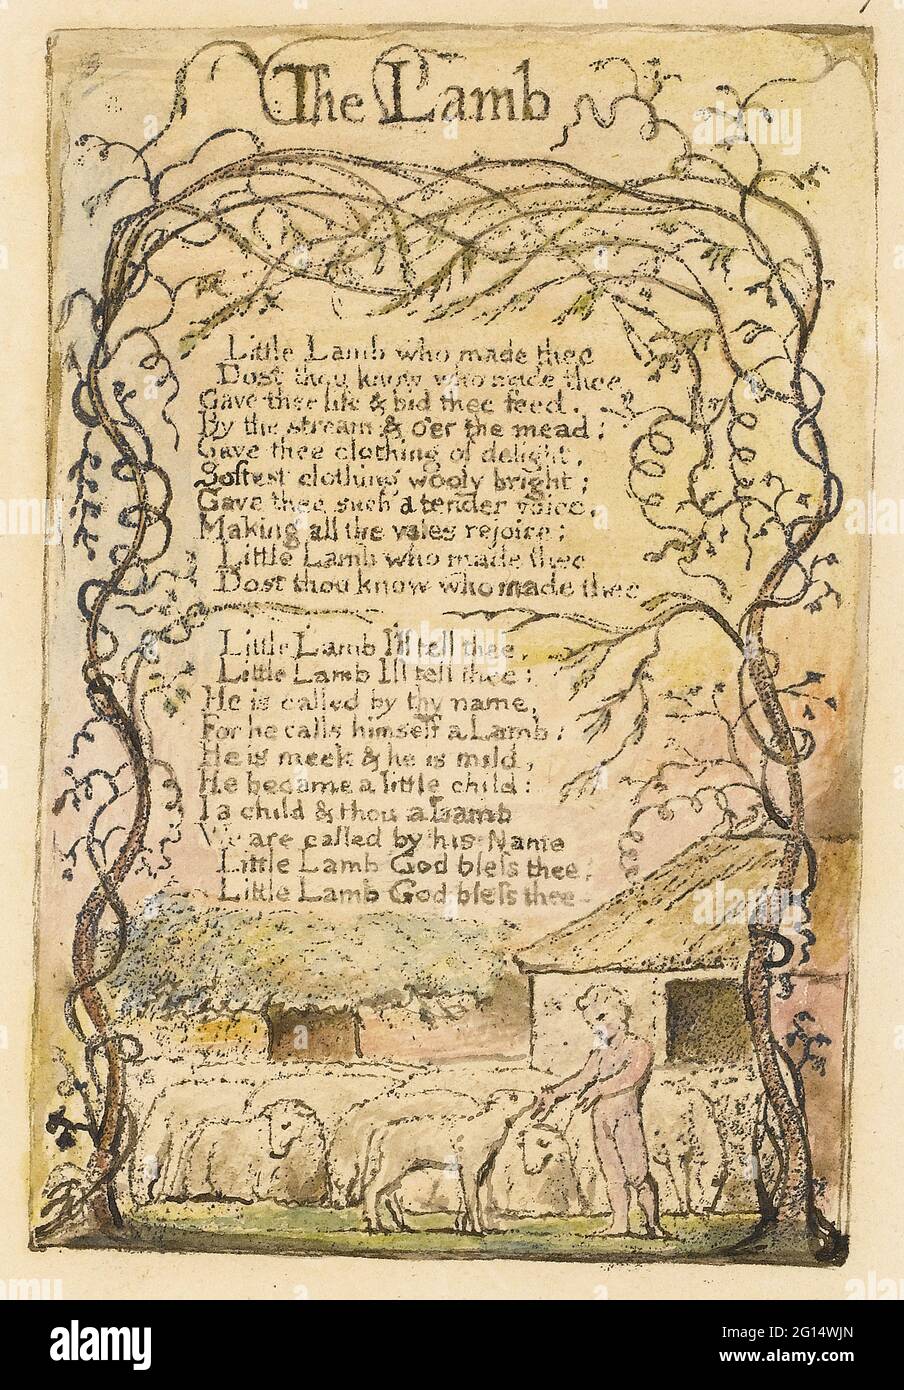 The Lamb
Little Lamb who made thee
Dost thou know who made thee
Gave thee life & bid thee feed.
By the stream & o'er the mead;
Gave thee clothing of delight,
Softest clothing wooly bright;
Gave thee such a tender voice,
Making all the vales rejoice:
Little Lamb who made thee
Dost thou know who made thee
Little Lamb I'll tell thee,
Little Lamb I'll tell thee:
He is called by thy name,
For he calls himself a Lamb:
He is meek & he is mild,
He became a little child:
I a child & thou a Lamb
We are called by his Name
Little Lamb God bless thee,
Little Lamb God bless thee
alamy
alamy
alamy
alamy
alamy
alamy
Image ID: 2G14WJN
www.alamy.com